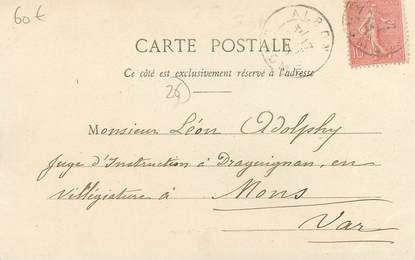 60 €
CARTE POSTALE
Ce côté est exclusivement réservé à l'adresse
26
Monsieur Léon Adolphy
Juge d'Instruction à Draguignan, en
villégiature à Mons
Var